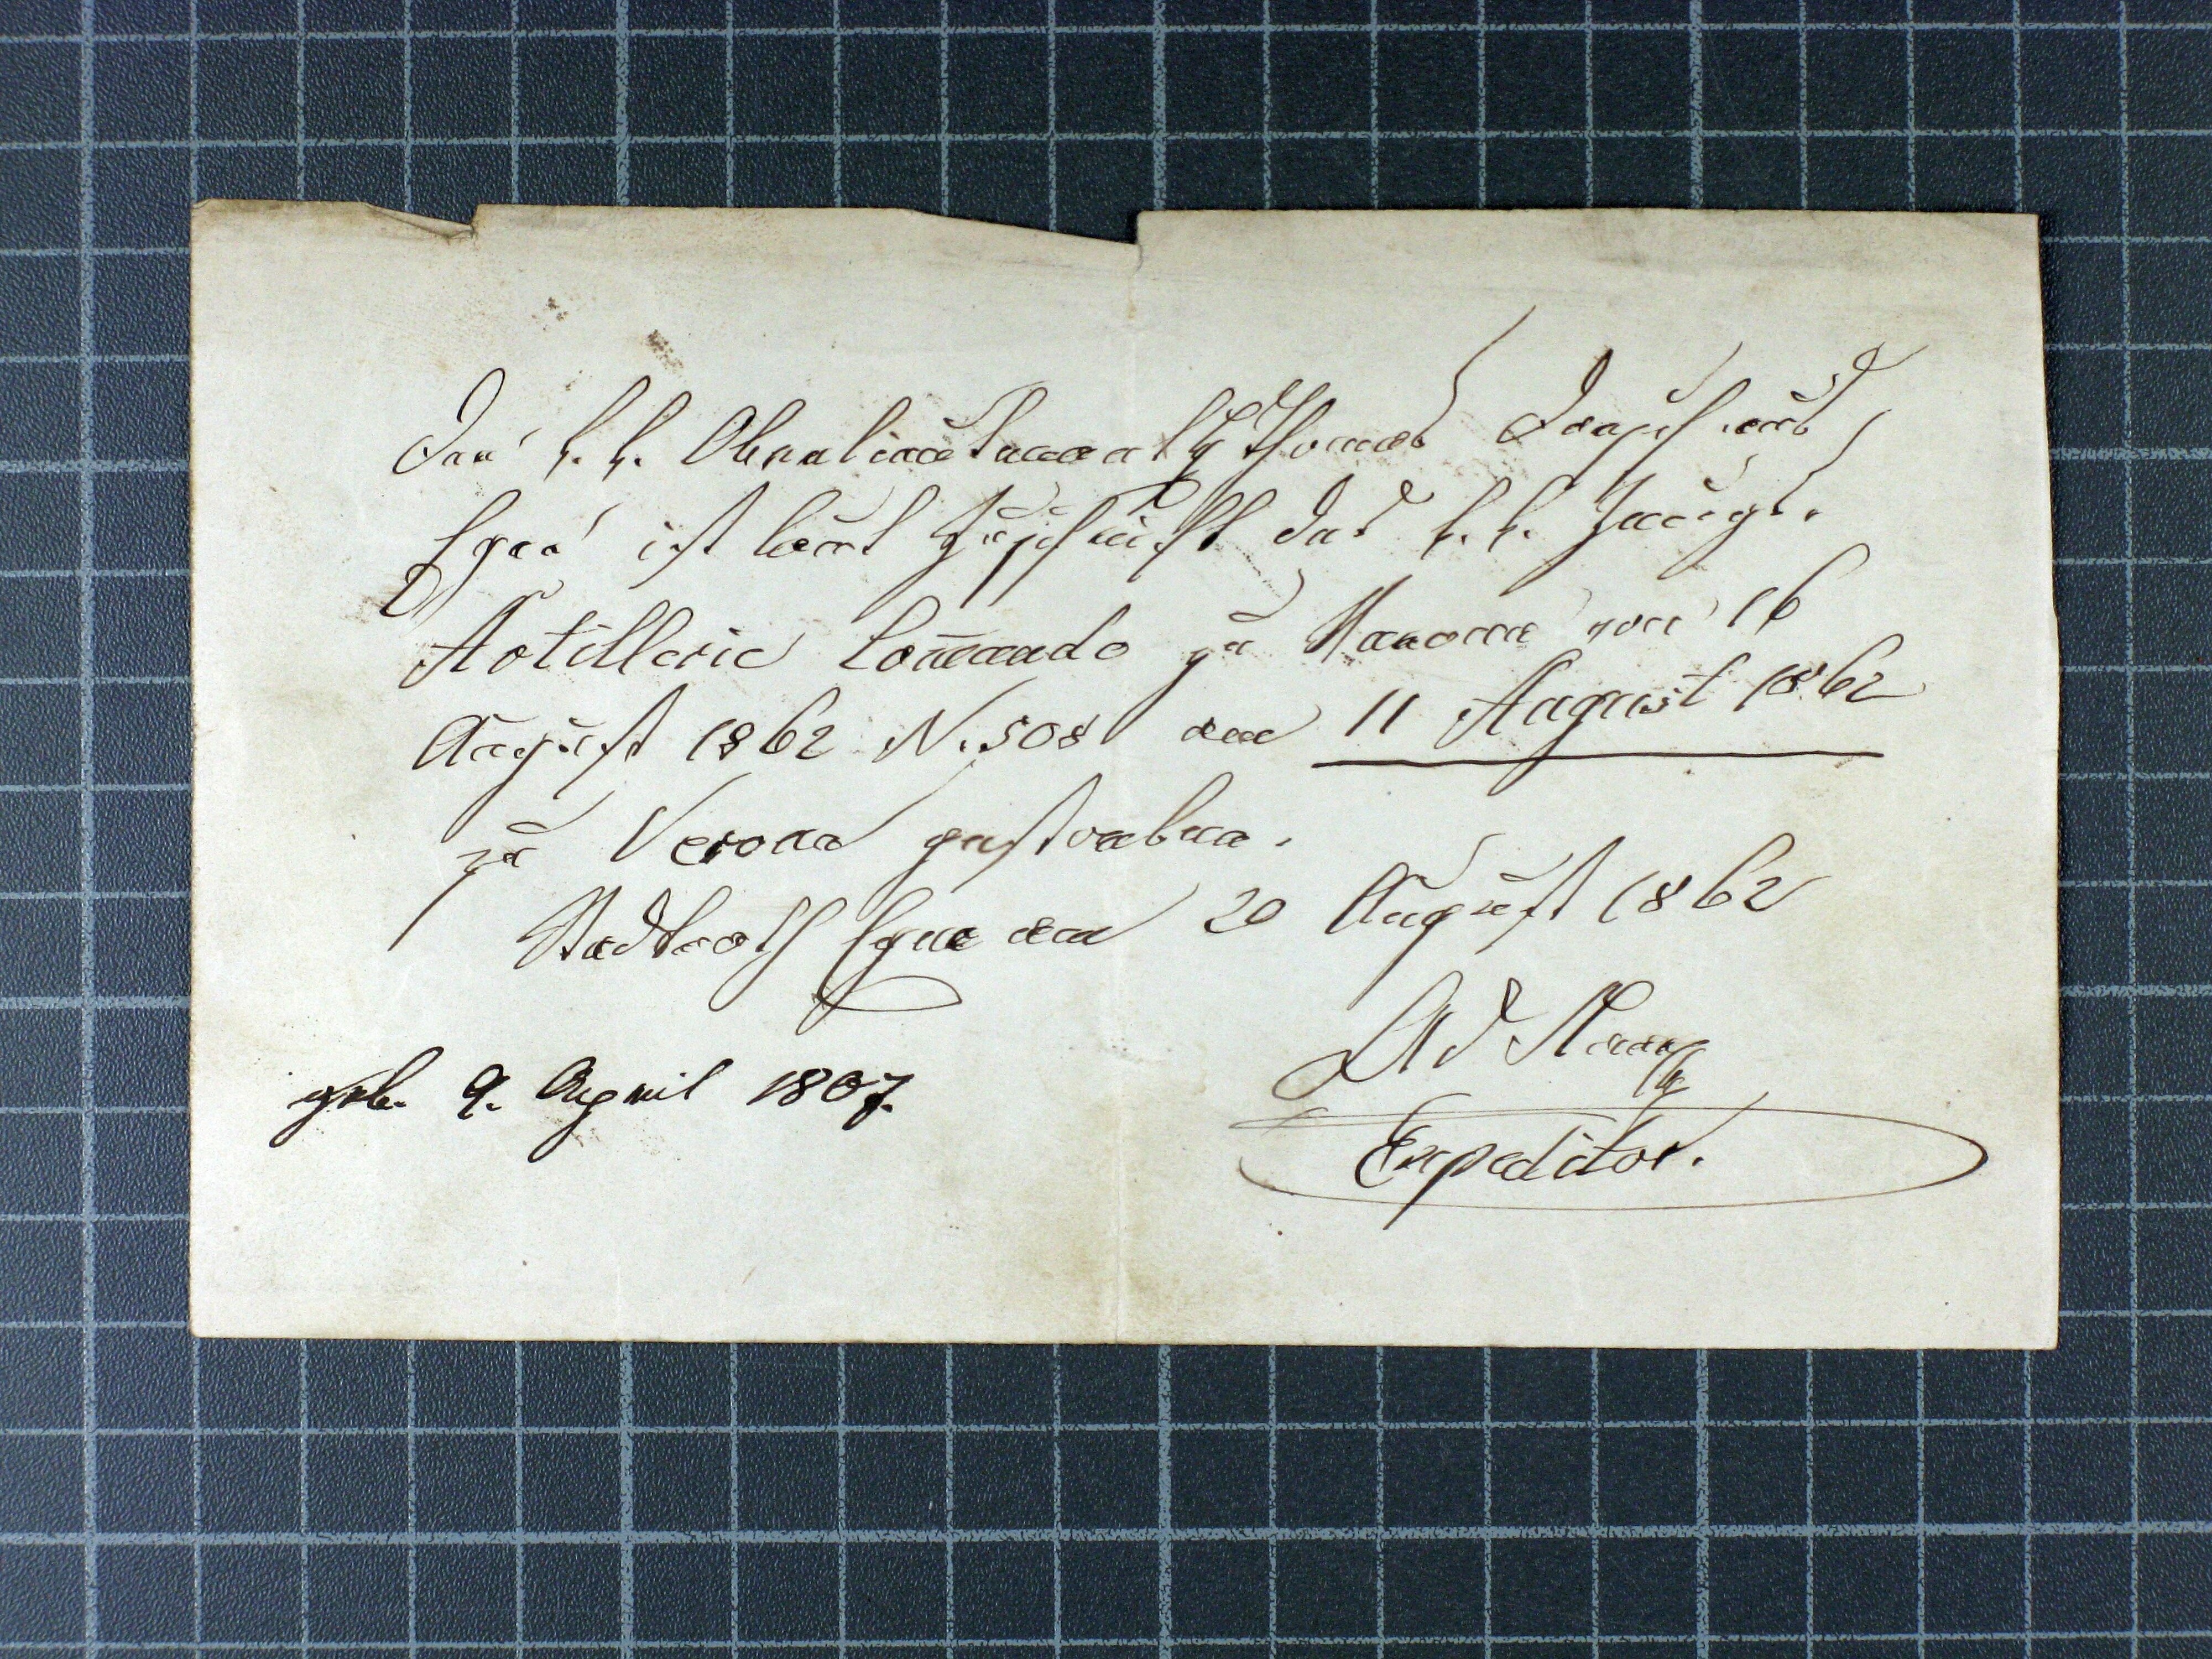 Der k. k. Oberlieutenant Thomas aus
Eger ist laut Zuschrift des k. k. Zeugs-
Artillerie Com̄ando zu Verona vom 16
August 1862 N. 508 am 11 August 1862
zu Verona gestorben.
Stadtrath Eger am 20 August 1862
Expeditor.
geb. 9. April 1807.